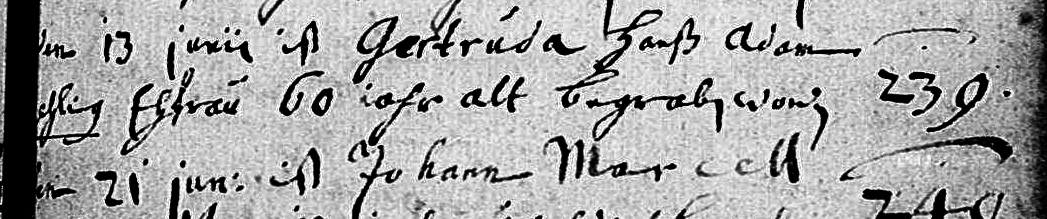 den 13 junii ist Gertruda Hanß Adam
Ehfrau 60 iahr alt begraben word 239.
21 jun: ist Johann Marcell